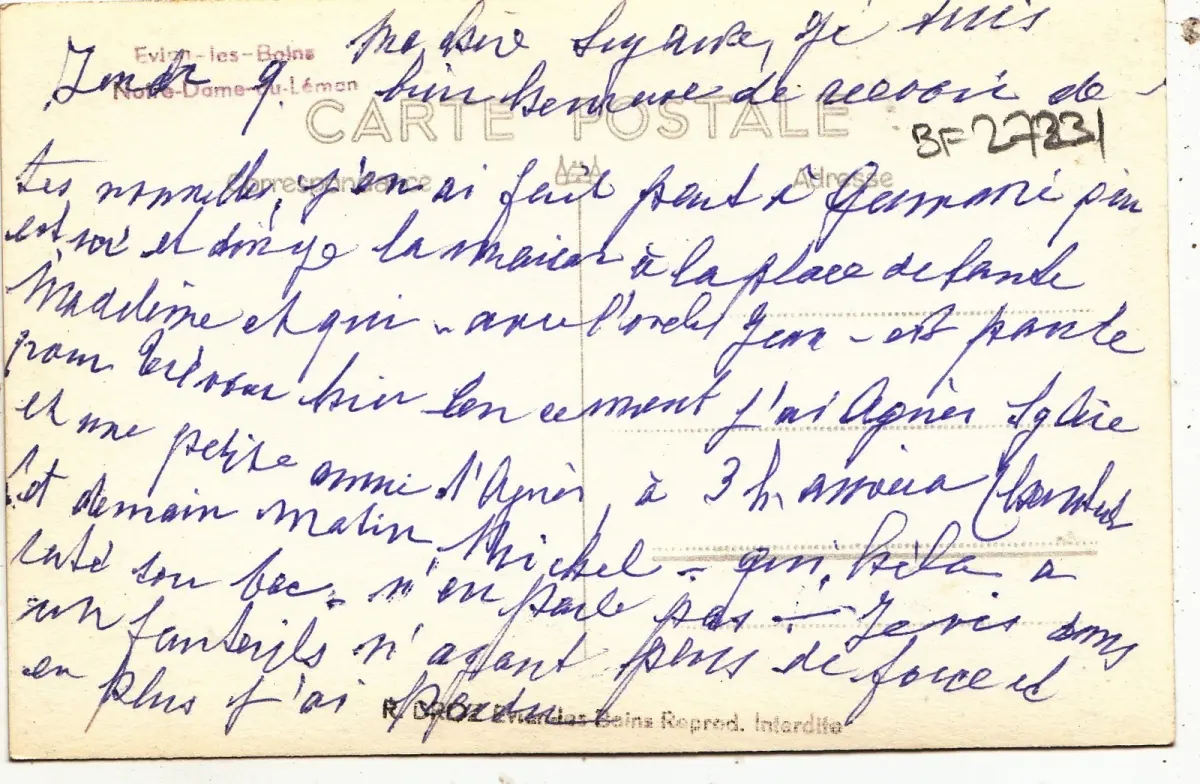 Ma chère Suzanne, je suis
Evian-les-Bains
Notre-Dame-du-Léman
Jeudi 9. bien heureuse de recevoir de
CARTE POSTALE
BF 27331
Correspondance
Adresse
tes nouvelles, j'en ai fait part à qui
est ici et dirige la maison à la place de tante
Madeleine et qui - avec l'oncle Jean - est partie
pour bien J'ai Agnès Sylvie
et une petite amie d'Agnès, à 3 h. arrivera
et demain matin, Michel - qui, hélas a
raté son bac - n'en parle pas! - Je vis dans
un fauteuil n'ayant plus de force et
en plus j'ai perdu
R. DROZ Evian-les-Bains Reprod. Interdite